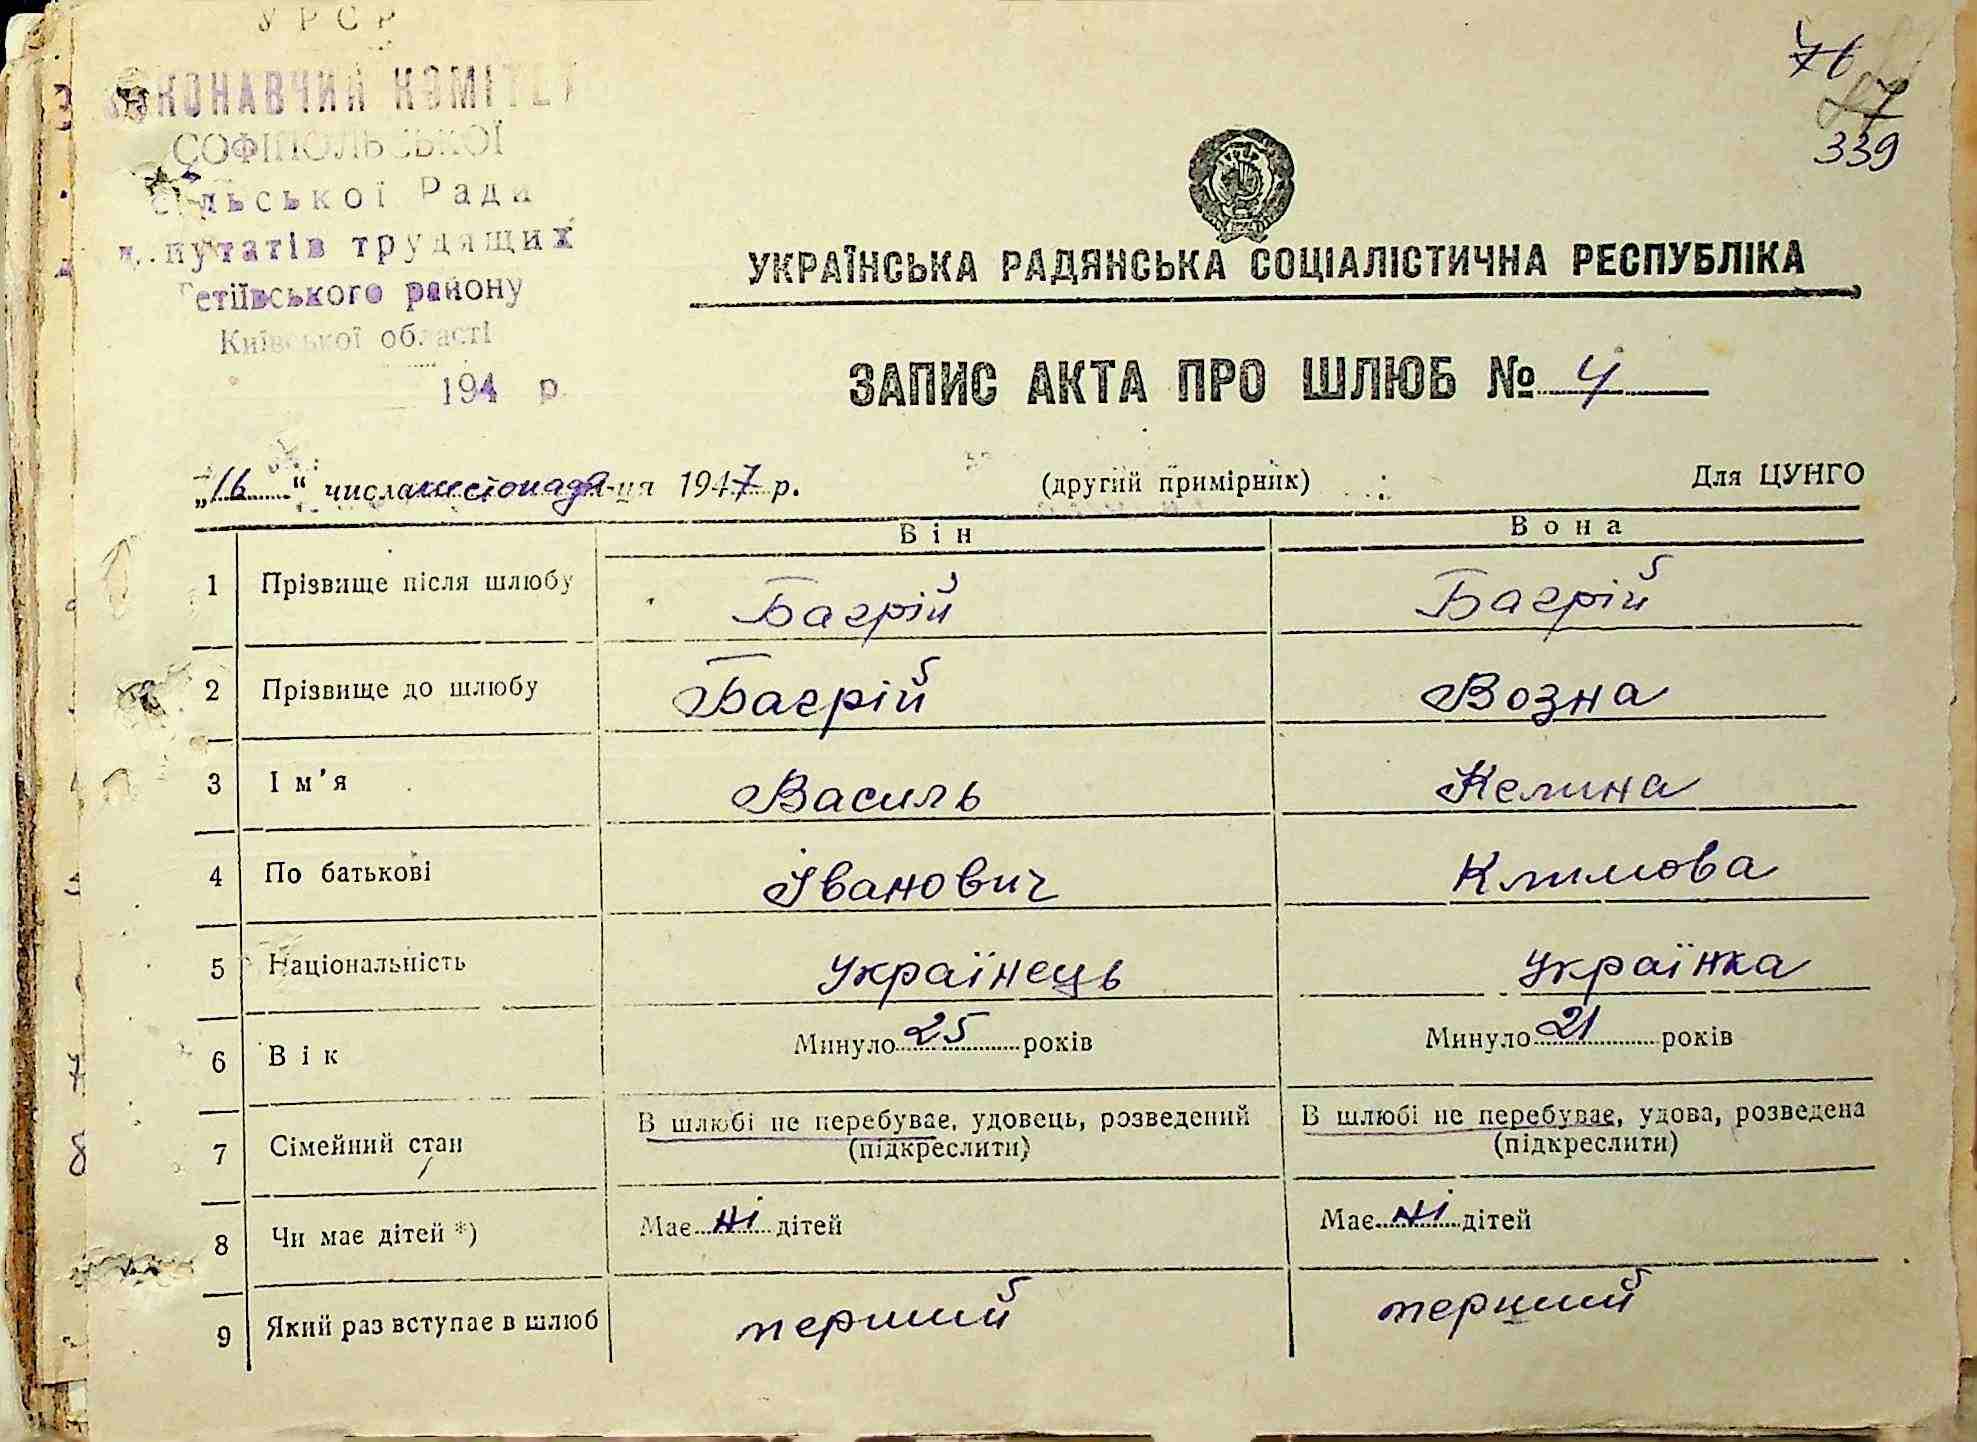 УРСР
ВИКОНАВЧИЙ КОМІТЕТ
СОФІПОЛЬСЬКОЇ
сільської Ради
депутатів трудящих
Тетіївського району
Київської області
194 р.
76
339
УКРАЇНСЬКА РАДЯНСЬКА СОЦІАЛІСТИЧНА РЕСПУБЛІКА
ЗАПИС АКТА ПРО ШЛЮБ № 4
„16“ числа листопада м-ця 1947 р. (другий примірник) Для ЦУНГО
Він Вона
1 Прізвище після шлюбу Багрій Багрій
2 Прізвище до шлюбу Багрій Возна
3 Ім'я Василь Келина
4 По батькові Іванович Климова
5 Національність Українець Українка
6 Вік Минуло 25 років Минуло 21 років
7 Сімейний стан В шлюбі не перебуває, удовець, розведений В шлюбі не перебуває, удова, розведена
(підкреслити) (підкреслити)
8 Чи має дітей *) Має ні дітей Має ні дітей
9 Який раз вступає в шлюб перший перший